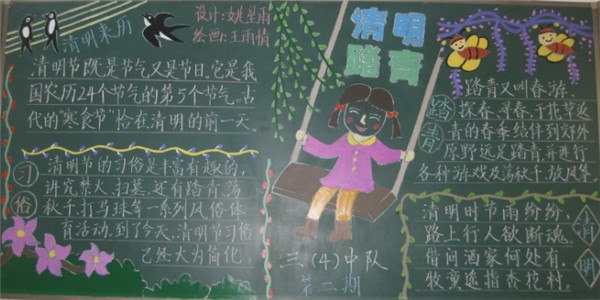 清明来历
设计:姚星雨
绘画:王雨情
清明节既是节气又是节日,它是我
国农历24个节气的第5个节气。古
代的“寒食节”恰在清明的前一天。
习俗
清明节的习俗是丰富有趣的,
讲究禁火、扫墓,还有踏青荡
秋千、打马球等一系列风俗体
育活动,到了今天,清明节习俗
已经大为简化。
清明
踏青
三.(4)中队
第二期
踏青
踏青又叫春游、
探春、寻春。于花草返
青的春季结伴到郊外
原野远足踏青,并进行
各种游戏及荡秋千、放风筝。
清明时节雨纷纷,
路上行人欲断魂。
借问酒家何处有,
牧童遥指杏花村。
清明